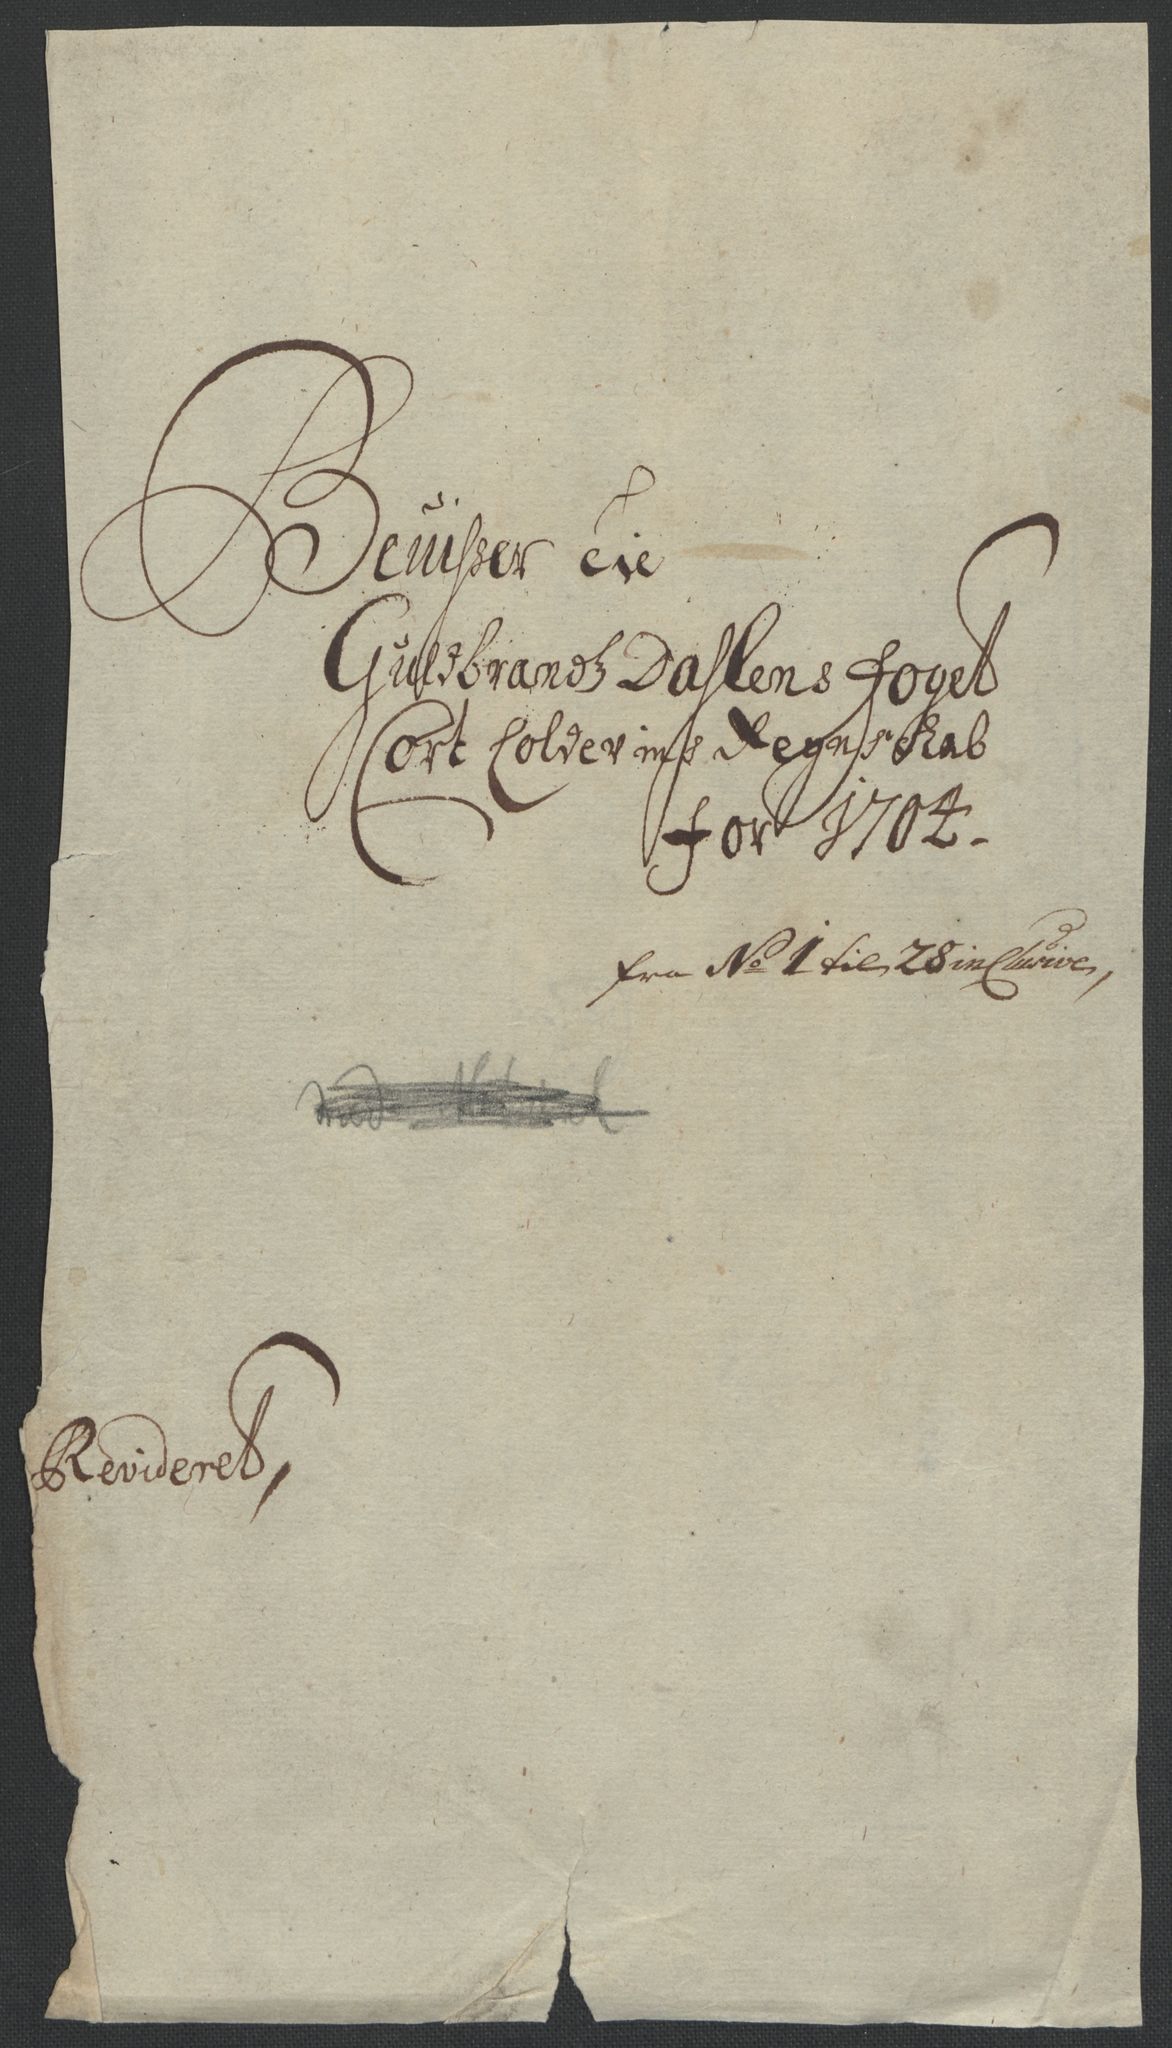 Beviisser til
Guldbrandtz Dahlens Foget
Cort Colderins Regnskab
for 1704.
fra No 1 til 28 inClusive,
Revideret,